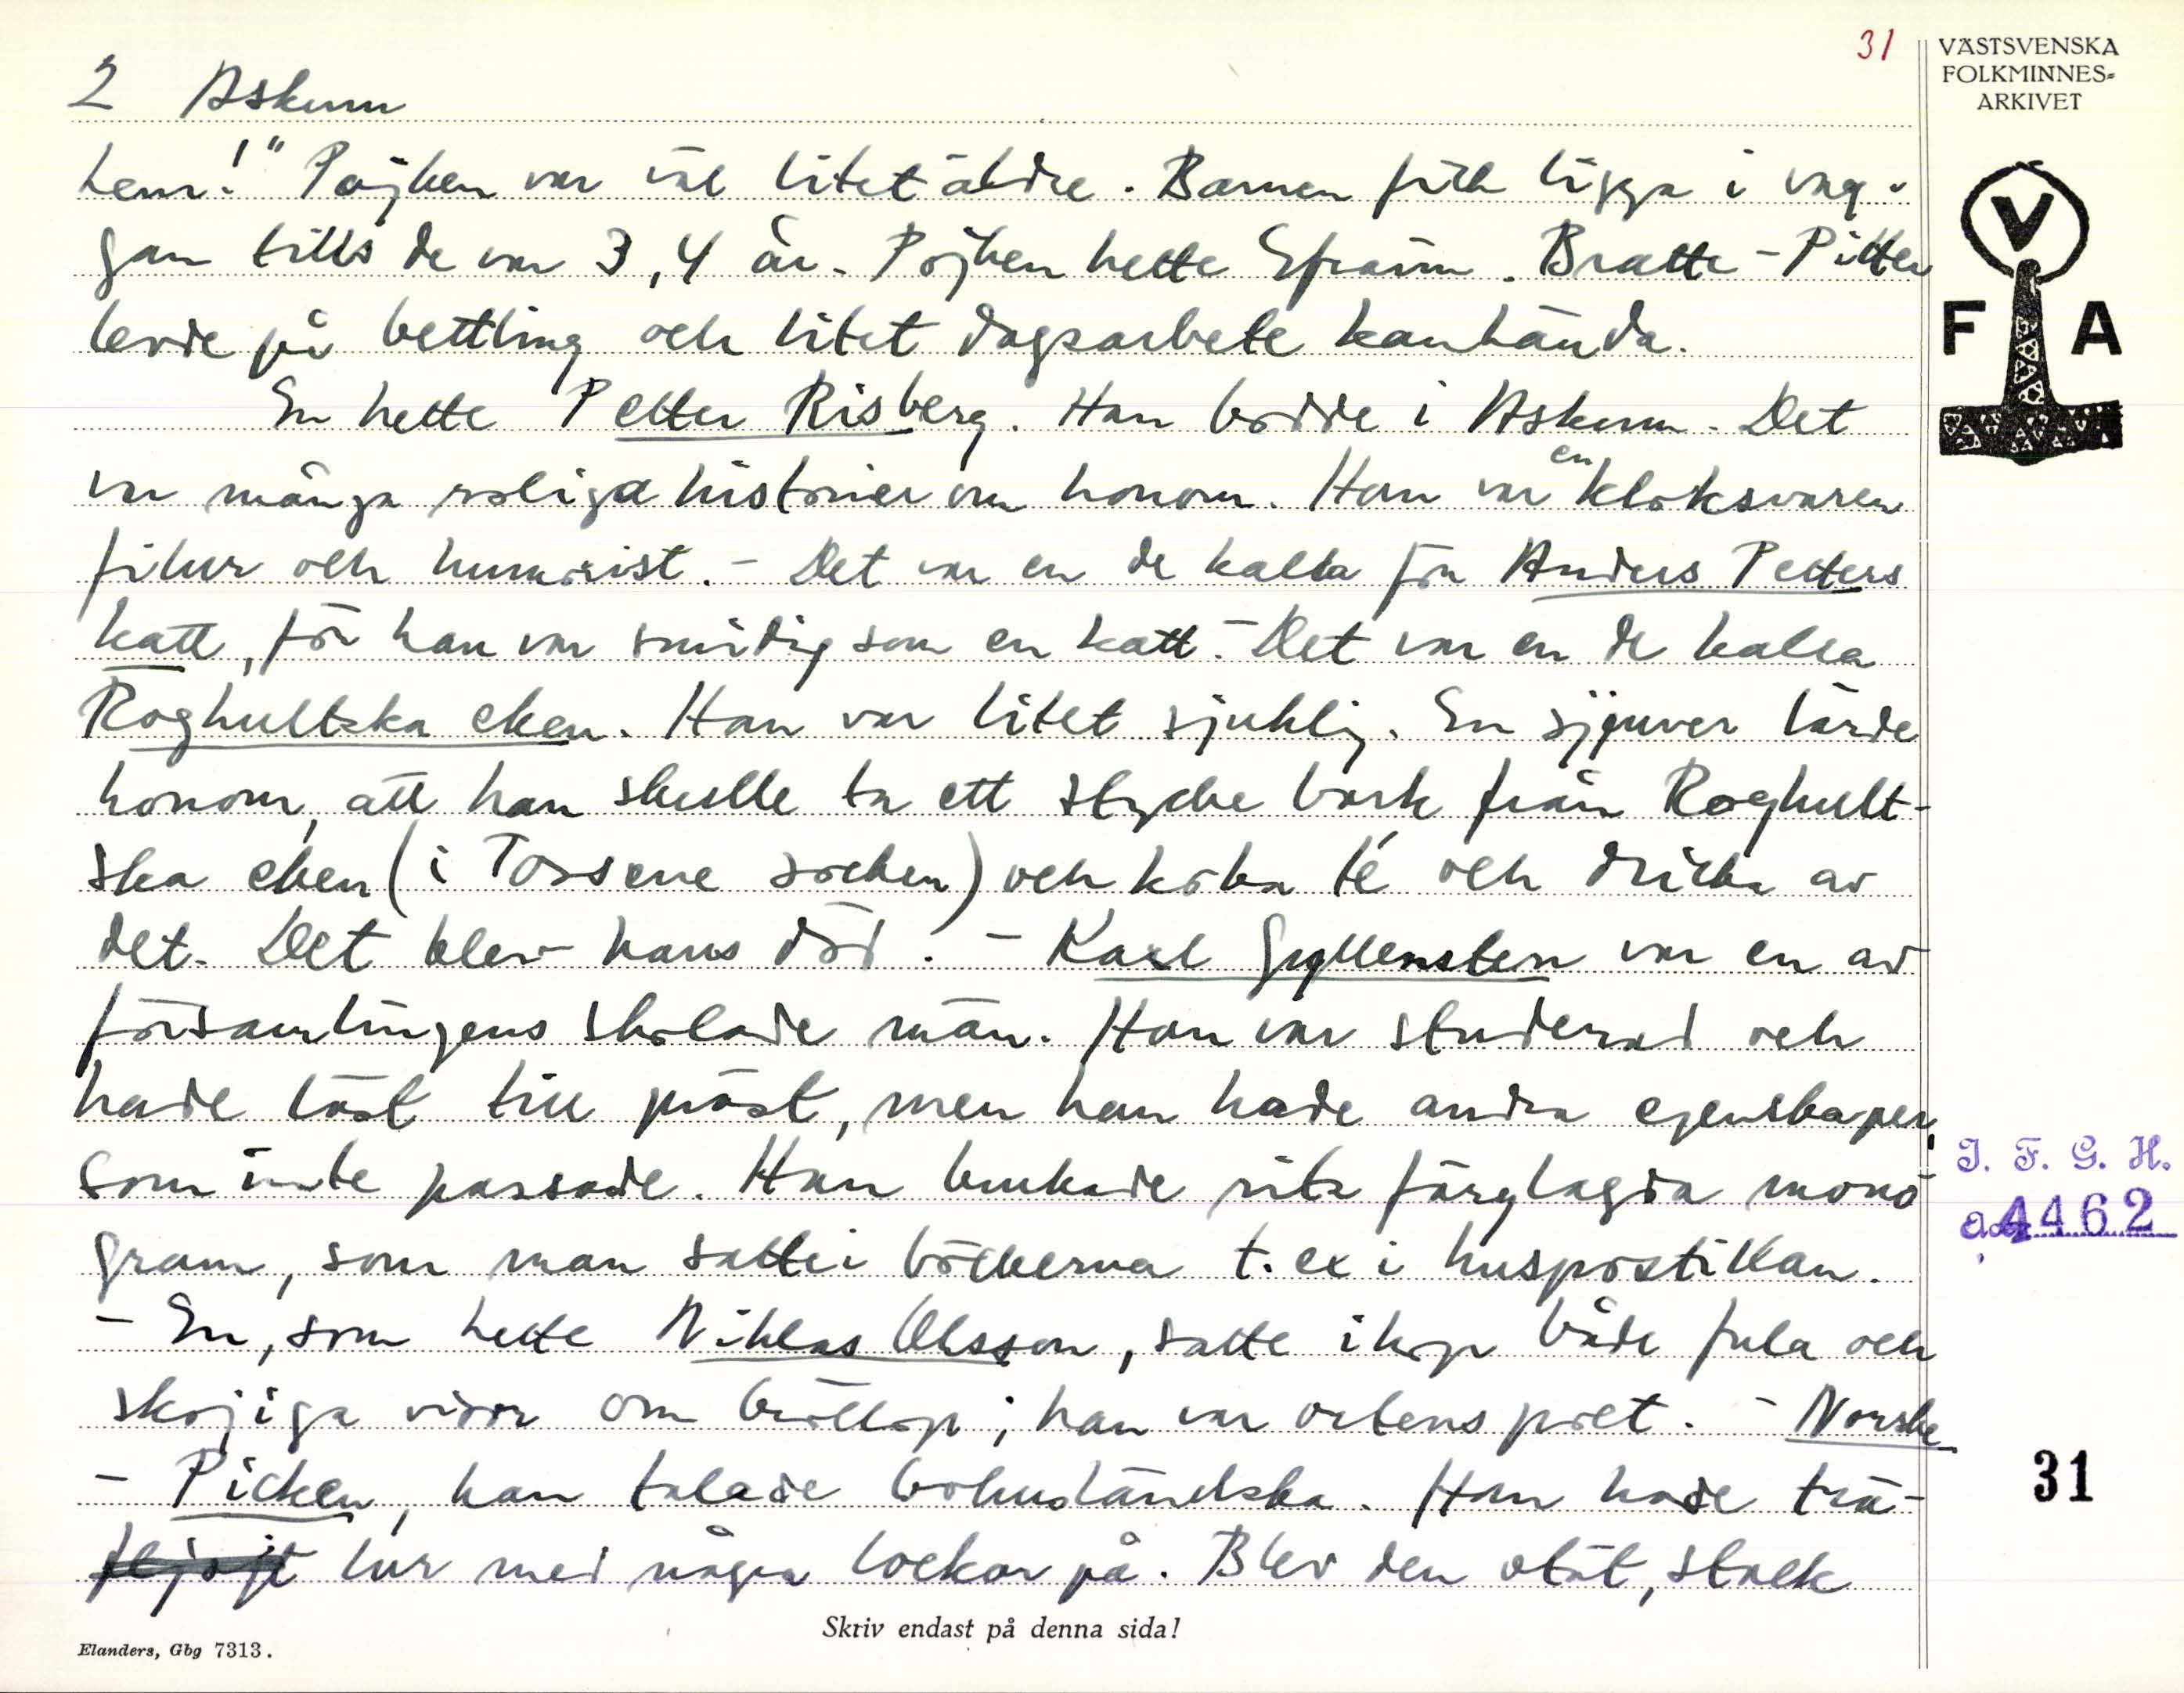 31
VÄSTSVENSKA
FOLKMINNES=
ARKIVET
2 Askum
hem!" Pojken var väl litet äldre. Barnen fick ligga i vag-
gan tills de var 3, 4 år. Pojken hette Efraim. Bratte-Pitter
levde på bettling och litet dagsarbete kanhända.
En hette Petter Risberg. Han bodde i Askum. Det
var många roliga historier om honom. Han var en kloksvaren
filur och humorist. - Det var en de kalla för Anders Petters
katt, för han var smidig som en katt. - Det var en de kalla
Roghultska eken. Han var litet sjuklig. En sjöuver lärde
honom, att han skulle ta ett stycke bark från Roghult-
ska eken (i Tossene socken) och koka té och dricka av
det. Det blev hans död. - Karl Gyllensten var en av
församlingens skolade män. Han var studerad och
hade läst till präst, men han hade andra egenskaper,
som inte passade. Han brukade rita färglagda mono-
gram, som man satte i böckerna t. ex i huspostillan.
- En, som hette Niklas Olsson, satte ihop både fula och
skojiga visor om bröllop; han var ortens poet. - Norske-
- Picken, han talade bohusländska. Han hade trä-
lur med några lockar på. Blev den otät, stack
V
F A
I. F. G. H.
4462
31
Skriv endast på denna sida!
Elanders, Gbg 7313.